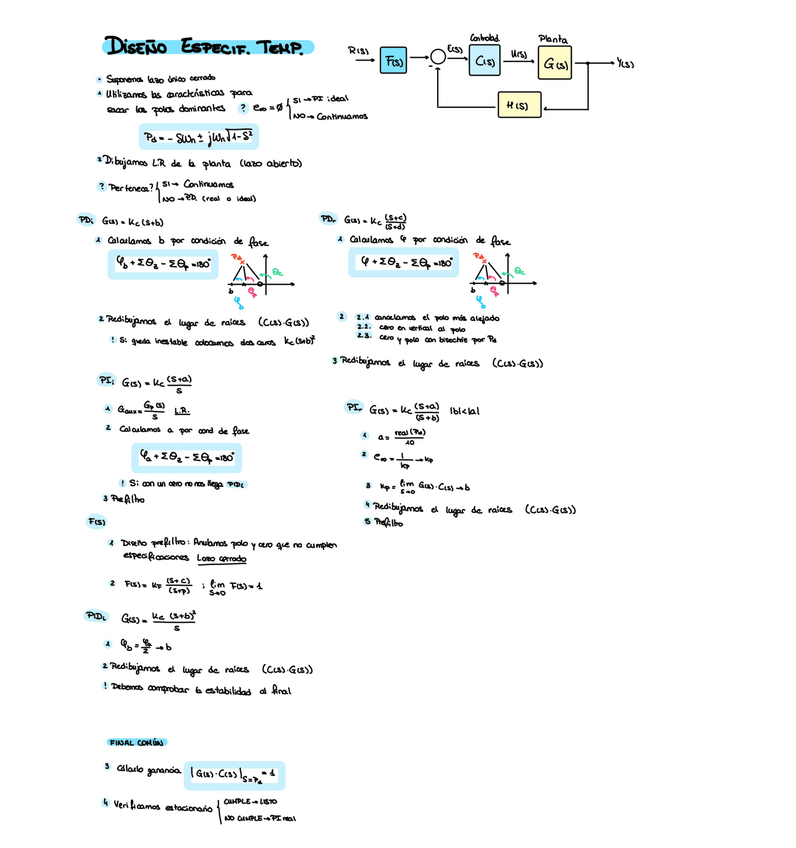 DISEÑO ESPECIF. TEMP.
R(s)
F(s)
-
E(s)
Controlad.
C(s)
U(s)
Planta
G(s)
Y(s)
H(s)
• Suponemos lazo único cerrado
1 Utilizamos las características para
sacar los polos dominantes ? e∞ = ∅ { SI → PI ideal
NO → Continuamos
Pd = - SWn ± jWn√1-S²
2 Dibujamos L.R. de la planta (lazo abierto)
? Pertenece? { SI → Continuamos
NO → P.D. (real o ideal)
PDi G(s) = Kc (s+b)
1 Calculamos b por condición de fase
φb + ΣΘz - ΣΘp = 180°
Pd
Θc
b
φb
Θp
2 Redibujamos el lugar de raíces (C(s)·G(s))
! Si queda inestable colocamos dos ceros Kc (s+b)²
PDr G(s) = Kc (s+c)/(s+d)
1 Calculamos φ por condición de fase
φ + ΣΘz - ΣΘp = 180°
Pd
Θc
b
φb
Θp
2 2.1 cancelamos el polo más alejado
2.2. cero en vertical al polo
2.3. cero y polo con bisectriz por Pd
3 Redibujamos el lugar de raíces (C(s)·G(s))
PIi G(s) = Kc (s+a)/s
1 Gaux = Gp(s)/s L.R.
2 Calculamos a por cond de fase
φa + ΣΘz - ΣΘp = 180°
! Si con un cero no nos llega PIDi
3 Prefiltro
PIr G(s) = Kc (s+a)/(s+b) |b|<|a|
1 a = real(Pd)/10
2 e∞ = 1/Kp → Kp
3 Kp = lim s→0 G(s)·C(s) → b
4 Redibujamos el lugar de raíces (C(s)·G(s))
5 Prefiltro
F(s)
1 Diseño prefiltro: Anulamos polo y cero que no cumplen
especificaciones Lazo cerrado
2 F(s) = KF (s+c)/(s+p) ; lim s→0 F(s) = 1
PIDi G(s) = Kc (s+b)²/s
1 φb = φb/2 → b
2 Redibujamos el lugar de raíces (C(s)·G(s))
! Debemos comprobar la estabilidad al final
FINAL COMÚN
3 Cálculo ganancia |G(s)·C(s)|s=Pd = 1
4 Verificamos estacionario { CUMPLE → LISTO
NO CUMPLE → PI real